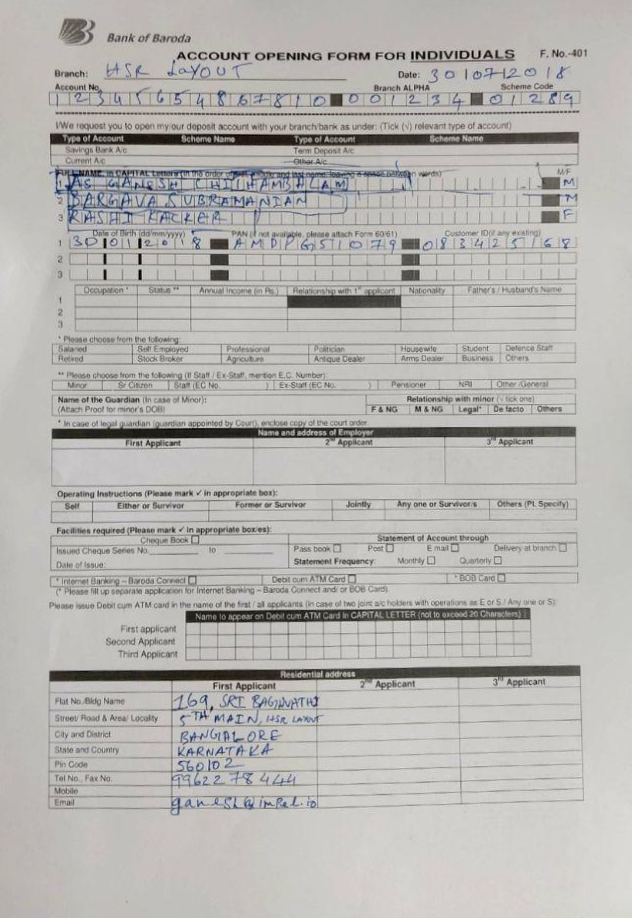 Bank of Baroda
ACCOUNT OPENING FORM FOR INDIVIDUALS F. No.-401
Branch: HSR LAYOUT Date: 30107/2018
Account No. Branch ALPHA Scheme Code
12345654867810 001234 01289
I/We request you to open my/our deposit account with your branch/bank as under: (Tick (√) relevant type of account)
Type of Account Scheme Name Type of Account Scheme Name
Savings Bank A/c Term Deposit A/c
Current A/c Other A/c
FULL NAME, in CAPITAL Letters (in the order of first, middle and last name, leaving a space between words) M/F
1 AS GANESH CHITHAMBALAM M
2 BARGAVA SUBRAMANIAN M
3 RASHI KACKER F
Date of Birth (dd/mm/yyyy) PAN (if not available, please attach Form 60/61) Customer ID(if any existing)
1 30 01 2018 AMDPG51079 083425168
2
3
Occupation * Status ** Annual Income (in Rs.) Relationship with 1st applicant Nationality Father's / Husband's Name
1
2
3
* Please choose from the following:
Salaried Self Employed Professional Politician Housewife Student Defence Staff
Retired Stock Broker Agriculture Antique Dealer Arms Dealer Business Others
** Please choose from the following (If Staff / Ex-Staff, mention E.C. Number):
Minor Sr Citizen Staff (EC No. ) Ex-Staff (EC No. ) Pensioner NRI Other /General
Name of the Guardian (In case of Minor): Relationship with minor (√ tick one)
(Attach Proof for minor's DOB) F & NG M & NG Legal* De facto Others
* In case of legal guardian (guardian appointed by Court), enclose copy of the court order.
Name and address of Employer
First Applicant 2nd Applicant 3rd Applicant
Operating Instructions (Please mark ✓ in appropriate box):
Self Either or Survivor Former or Survivor Jointly Any one or Survivor/s Others (Pl. Specify)
Facilities required (Please mark ✓ in appropriate box/es):
Cheque Book Statement of Account through
Issued Cheque Series No. to Pass book Post E mail Delivery at branch
Date of Issue: Statement Frequency: Monthly Quarterly
* Internet Banking – Baroda Connect Debit cum ATM Card * BOB Card
(* Please fill up separate application for Internet Banking – Baroda Connect and/ or BOB Card)
Please issue Debit cum ATM card in the name of the first / all applicants (in case of two joint a/c holders with operations as E or S / Any one or S):
Name to appear on Debit cum ATM Card in CAPITAL LETTER (not to exceed 20 Characters)
First applicant
Second Applicant
Third Applicant
Residential address
First Applicant 2nd Applicant 3rd Applicant
Flat No./Bldg Name 169, SRI BAGHVATHI
Street/ Road & Area/ Locality 5TH MAIN, HSR LAYOUT
City and District BANGALORE
State and Country KARNATAKA
Pin Code 560102
Tel No., Fax No. 9962278444
Mobile
Email ganesh@impel.io